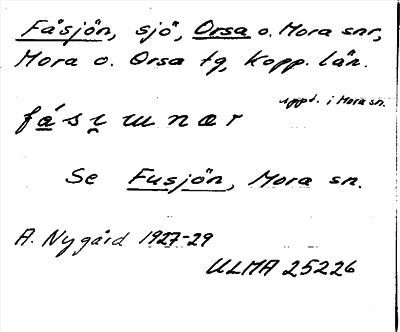 Fåsjön, sjö, Orsa o. Mora snr,
Mora o. Orsa tg, Kopp. län.
uppt. i Mora sn.
Se Fusjön, Mora sn.
A. Nygård 1927-29
ULMA 25226